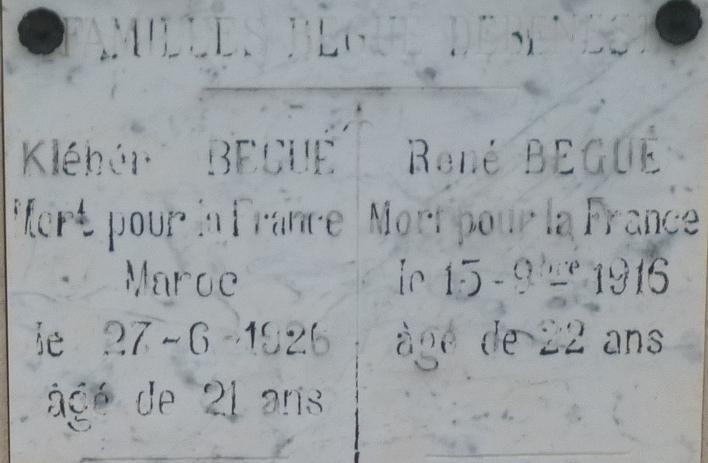 FAMILLES BEGUE DEBENEST
Kléber BEGUÉ
Mort pour la France
Maroc
le 27-6-1926
âgé de 21 ans
René BEGUÉ
Mort pour la France
le 15-9bre 1916
âgé de 22 ans